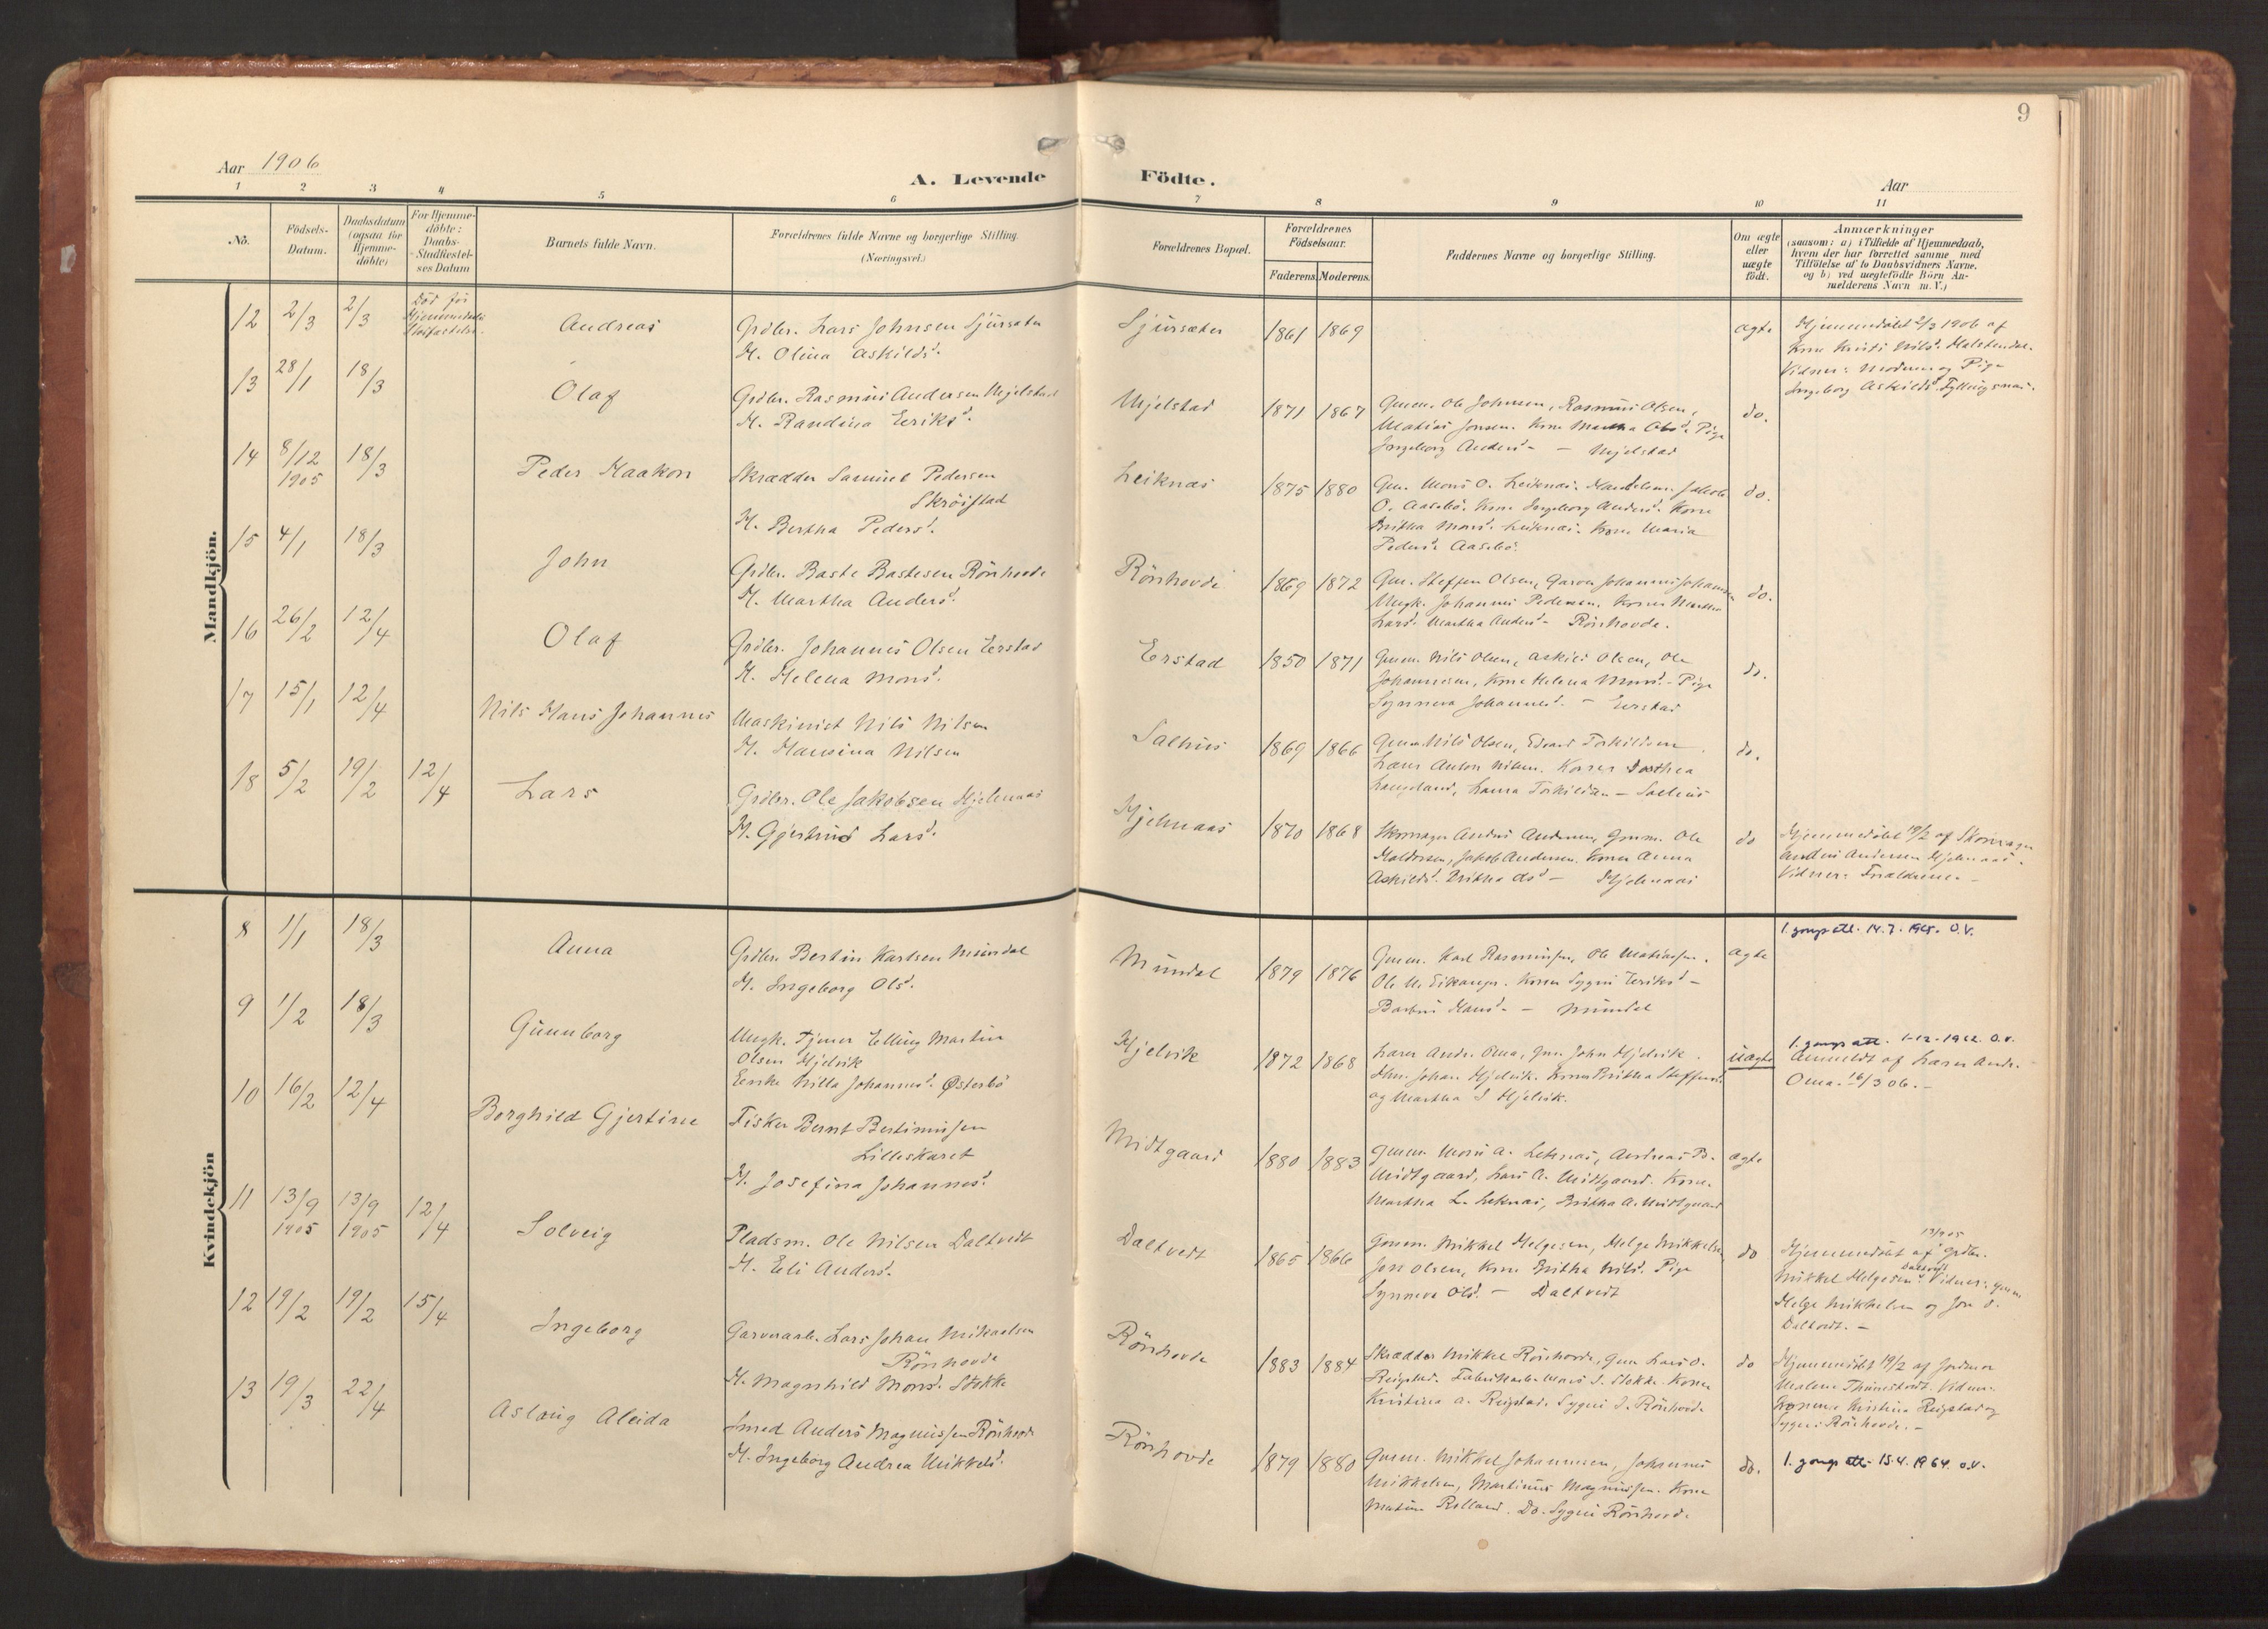 9
Aar 1906
A. Levende Födte.
Aar
1 2 3 4 5 6 7 8 9 10 11
Nö.
Födsels-
Datum.
Daabsdatum
(ogsaa for
Hjemme-
döbte)
For Hjemme-
döbte:
Daabs-
Stadfæstel-
ses Datum
Barnets fulde Navn.
Forældrenes fulde Navne og borgerlige Stilling.
(Næringsvei.)
Forældrenes Bopæl.
Forældrenes
Födselsaar.
Faderens. Moderens.
Faddernes Navne og borgerlige Stilling.
Om ægte
eller
uægte
födt.
Anmærkninger
(saasom: a) i Tilfælde af Hjemmedaab,
hvem der har forrettet samme med
Tilföielse af to Daabsvidners Navne,
og b) ved uægtefödte Börn An-
melderens Navn m.V.)
Mandkjön.
12 2/3 2/3 Död för
Hjemmedaabs
Stadfæstelse.
Andreas
Grdbr. Lars Johnsen Sjursæter
H. Olina Askildsd.
Sjursæter
1861 1869
ægte
Hjemmedöbt 2/3 1906 af
Kone Kristi Nilsd.
Vidner: Moderen og Pige
Ingeborg Askildsd.
13 28/1 18/3
Olaf
Grdbr. Rasmus Andersen Mjelstad
H. Randina Eriksd.
Mjelstad
1871 1867
Gmm. Ole Johnsen, Rasmus Olsen,
Matias Jonsen. Kone Martha Olsd. Pige
Ingeborg Andersd. - Mjelstad
do.
14 8/12
1905 18/3
Peder Haakon
Skrædder Samuel Pedersen
Skröistad
H. Bertha Pedersd.
Leiknes
1875 1880
Gm. Mons O. Leiknes. Handelsm. Jakob
O. Aasebö. Kone Ingeborg Andersd. Kone
Britha Monsd. Leiknes. Kone Maria
Pedersd. Aasebö.
do.
15 4/1 18/3
John
Grdbr. Baste Bastesen Rönhovde
H. Martha Andersd.
Rönhovde
1869 1872
Gm. Steffen Olsen, Garver Johannes Johannesen
Ungk. Johannes Pedersen. Koner Martha
Larsd. Martha Andersd. Rönhovde.
do.
16 26/2 12/4
Olaf
Grdbr. Johannes Olsen Eerstad
H. Helena Monsd.
Erstad
1850 1871
Gmm. Nils Olsen, Askild Olsen, Ole
Johannesen, Kone Helena Monsd. - Pige
Synneva Johannesd. - Eerstad
do.
17 15/1 12/4
Nils Hans Johannes
Maskinist Nils Nilsen
H. Hansina Nilsen
Salhus
1869 1866
Gmm Nils Olsen, Edvard Torkildsen.
Lærer Anton Nilsen. Koner Dorthea
Langeland, Laura Torkildsen - Salhus
do.
18 5/2 19/2 12/4
Lars
Grdbr. Ole Jakobsen Hjelmaas
H. Gjertrud Larsd.
Hjelmaas
1870 1868
Skomager Anders Andersen, Gmm. Ole
Haldorsen, Jakob Andersen. Koner Anna
Askildsd. Britha do - Hjelmaas
do
Hjemmedöbt 19/2 af Skomager
Anders Andersen Hjelmaas.
Vidner: Forældrene. -
Kvindekjön
8 1/1 18/3
Anna
Grdbr. Bertin Karlsen Mundal
H. Ingeborg Olsd.
Mundal
1879 1876
Gmm. Karl Rasmussen, Ole Matiassen.
Ole M. Eikanger. Koner Sygni Eriksd. -
Barbro Hansd. - Mundal
ægte
1. gongs att. 14.7. 1965. O.V.
9 1/2 18/3
Gunnborg
Ungk. Tjener Elling Martin
Olsen Hjelvik
Enke Nilla Johannesd. Österbö
Hjelvik
1872 1868
Lærer Andr. Oma, Gm. John Hjelvik.
Johan Hjelvik. Koner Britha Steffensd.
og Martha J Hjelvik.
uægte
1. gongs att. 1-12-1962. O.V.
Anmeldt af Lærer Andr.
Oma. 16/3 06. -
10 16/2 12/4
Borghild Gjertine
Fisker Bernt Bertinussen
Lilleskaret
H. Josefina Johannesd.
Midtgaard
1880 1883
Gmm. Mons A. Leknes, Andreas B.
Midtgaard, Lars A. Midtgaard. Kone
Martha L. Leknes, Britha A. Midtgaard
ægte
11 13/9
1905 13/9
1905 12/4
Solveig
Pladsm. Ole Nilsen Daltvedt
H. Eli Andersd.
Daltvedt
1865 1866
Gmm. Mikkel Helgesen, Helge Mikkelsen,
Jon Olsen, Kone Britha Nilsd. Pige
Synneva Olsd. - Daltvedt
do
Hjemmedöbt 13/9 05 af Grdbr.
Mikkel Helgesen Daltvedt. Vidner: Gmm
Helge Mikkelsen og Jon O.
Daltvedt. -
12 19/2 19/2 15/4
Ingeborg
Garverarb. Lars Johan Mikaelsen
Rönhovde
H. Magnhild Monsd. Stokke
Rönhovde
1883 1884
Skrædder Mikkel Rönhovde, Gmm Lars O.
Reigstad. Fabrikarb. Mons J. Stokke. Kone
Kristina A. Reigstad. Sygni J. Rönhovde
do
Hjemmedöbt 19/2 af Jordmor
Malene Vidner:
Konerne Kristina Reigstad og
Sygni Rönhovde. -
13 19/3 22/4
Aslaug Aleida
Smed Anders Magnussen Rönhovde
H. Ingeborg Andrea Mikkelsd.
Rönhovde
1879 1880
Gmm. Mikkel Johannesen, Johannes
Mikkelsen, Martinus Magnussen. Kone
Rolland. Do. Sygni Rönhovde
do.
1. gongs att. 15.4. 1964. O.V.